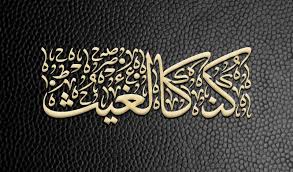 كن كالغيث